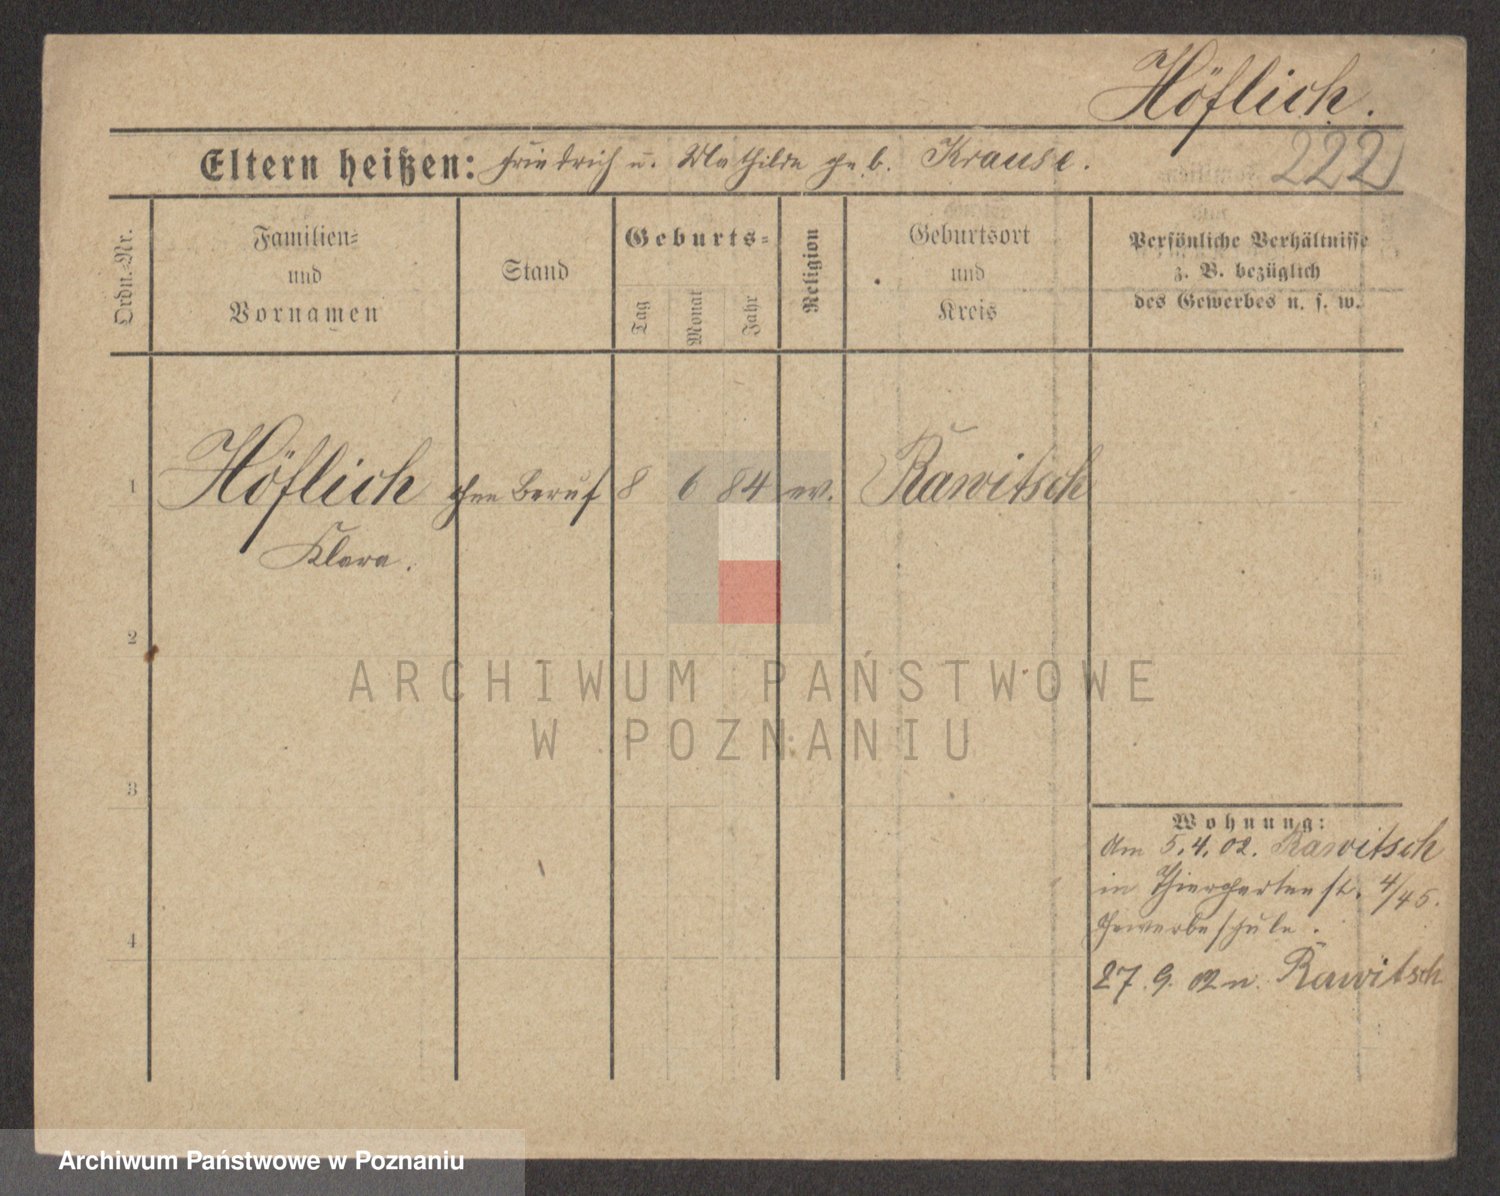 Höflich.
Eltern heißen: Friedrich u. Mathilde geb. Krause.
222
Ordn.-Nr.
Familien-
und
Vornamen
Stand
Geburts-
Tag
Monat
Jahr
Religion
Geburtsort
und
Kreis
Persönliche Verhältnisse
z. B. bezüglich
des Gewerbes u. s. w.
1 Höflich ohne Beruf 8 6 84 ev. Rawitsch
Klara.
2
3
4
Wohnung:
Am 5.4.02. Rawitsch
in Thiergartenst. 4/45.
Gewerbeschule.
27.9.02 n. Rawitsch
ARCHIWUM PAŃSTWOWE
W POZNANIU
Archiwum Państwowe w Poznaniu